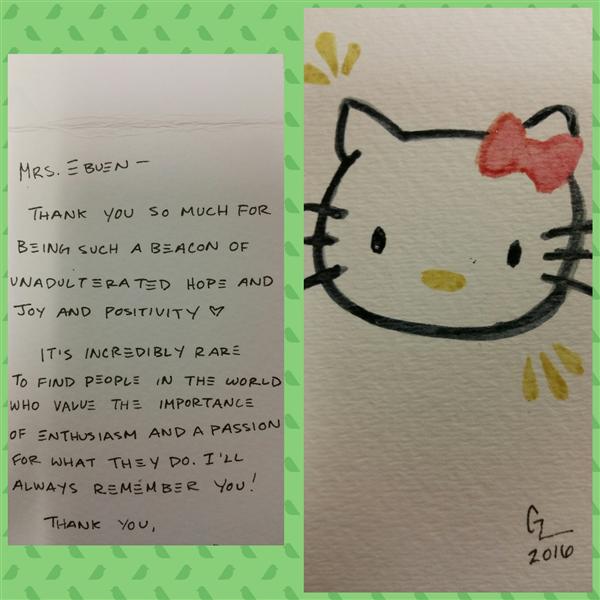 MRS. EBUEN –
THANK YOU SO MUCH FOR
BEING SUCH A BEACON OF
UNADULTERATED HOPE AND
JOY AND POSITIVITY ♡
IT'S INCREDIBLY RARE
TO FIND PEOPLE IN THE WORLD
WHO VALUE THE IMPORTANCE
OF ENTHUSIASM AND A PASSION
FOR WHAT THEY DO. I'LL
ALWAYS REMEMBER YOU!
THANK YOU,
GL
2016